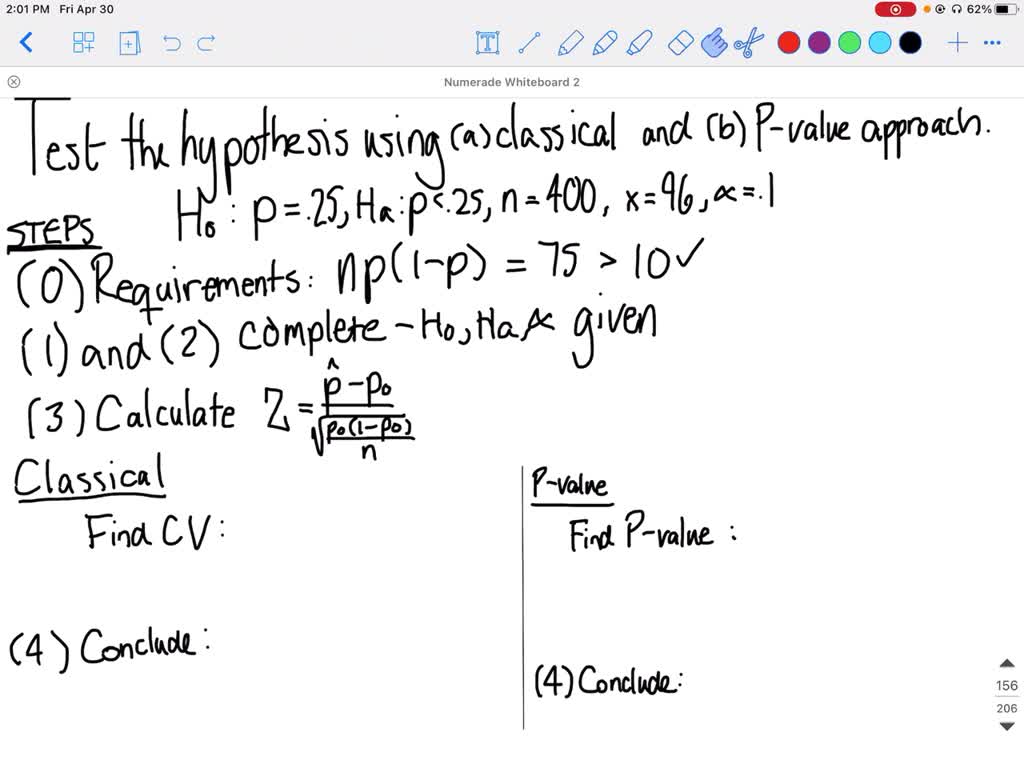 2:01 PM Fri Apr 30
62%
Numerade Whiteboard 2
Test the hypothesis using (a) classical and (b) P-value approach.
H₀ : p = .25, Ha : p < .25, n = 400, x = 96, α = .1
STEPS
(0) Requirements: np(1-p) = 75 > 10 ✓
(1) and (2) complete - H₀, Ha, α given
(3) Calculate Z = p̂ - p₀ / √p₀(1-p₀) / n
Classical
Find CV:
(4) Conclude:
P-value
Find P-value :
(4) Conclude:
156
206